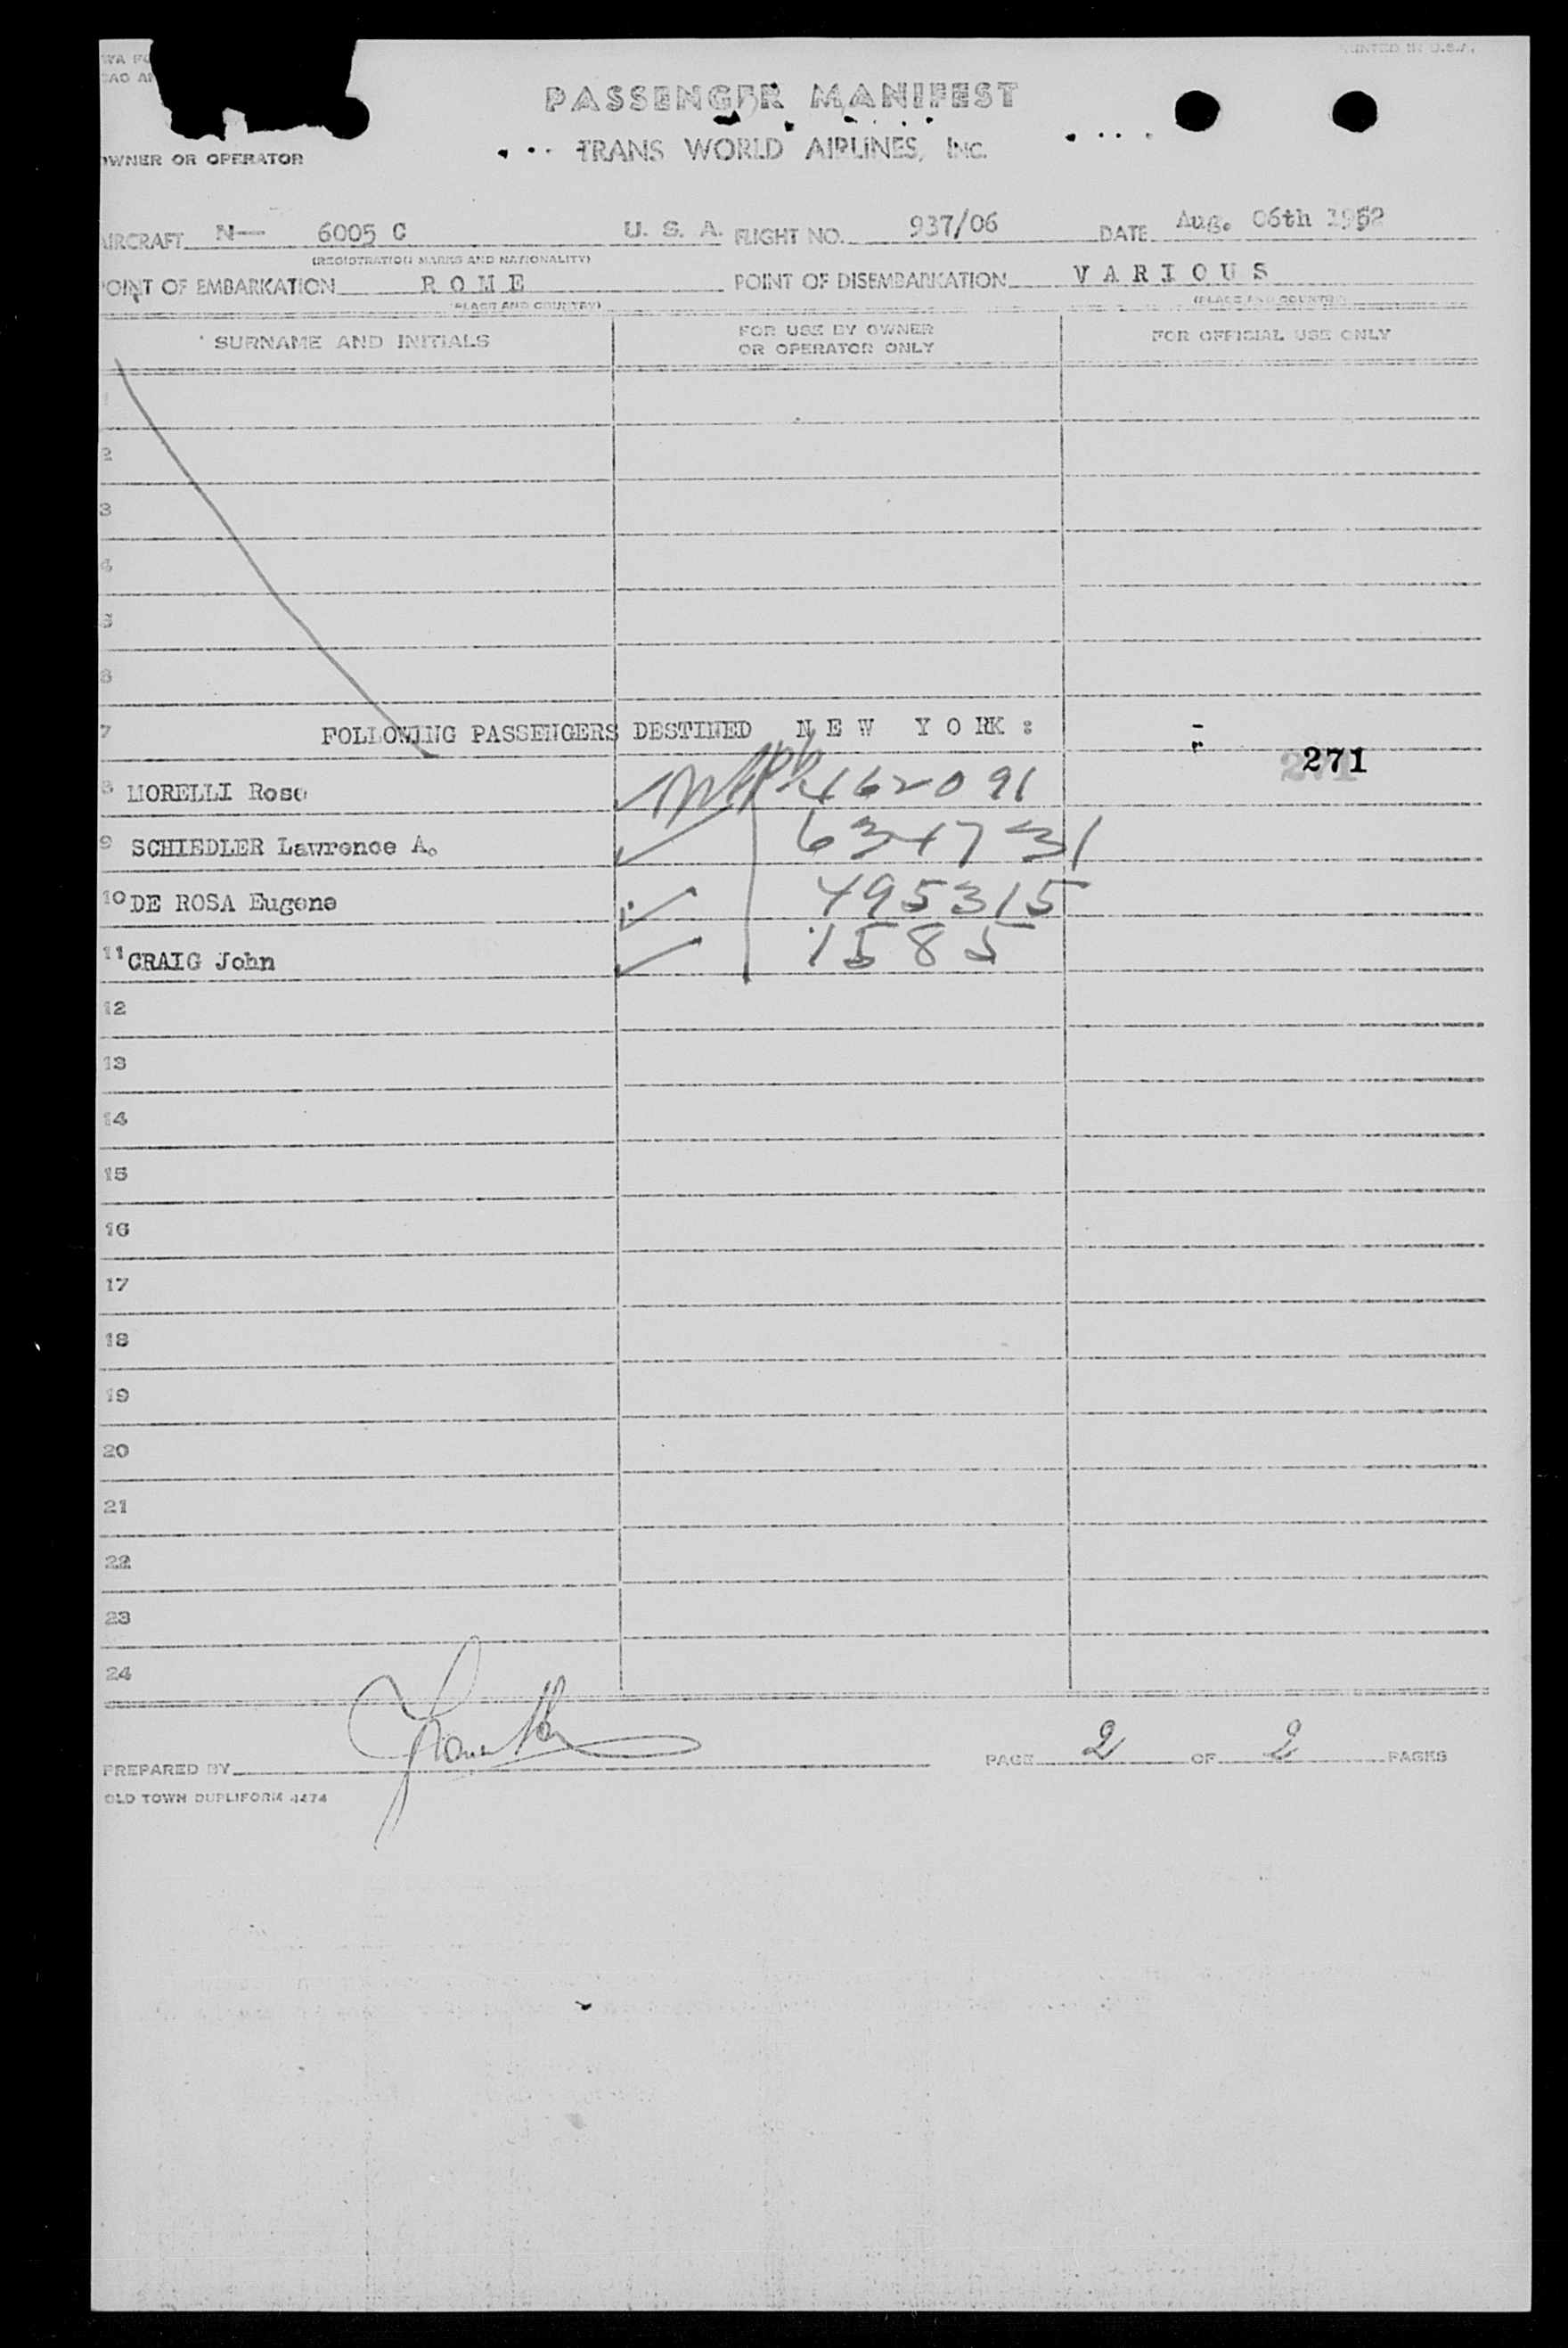 PRINTED IN U.S.A.
PASSENGER MANIFEST
OWNER OR OPERATOR TRANS WORLD AIRLINES, INC.
AIRCRAFT N— 6005 C U. S. A. FLIGHT NO. 937/06 DATE Aug. 06th 1952
(REGISTRATION MARKS AND NATIONALITY)
POINT OF EMBARKATION R O M E POINT OF DISEMBARKATION V A R I O U S
(PLACE AND COUNTRY) (PLACE AND COUNTRY)
SURNAME AND INITIALS FOR USE BY OWNER OR OPERATOR ONLY FOR OFFICIAL USE ONLY
1
2
3
4
5
6
7 FOLLOWING PASSENGERS DESTINED N E W Y O RK :
271
8 MORELLI Rose 462091
9 SCHIEDLER Lawrence A. 634731
10 DE ROSA Eugene 495315
11 CRAIG John 1585
12
13
14
15
16
17
18
19
20
21
22
23
24
PREPARED BY PAGE 2 OF 2 PAGES
OLD TOWN DUPLIFORM 4474